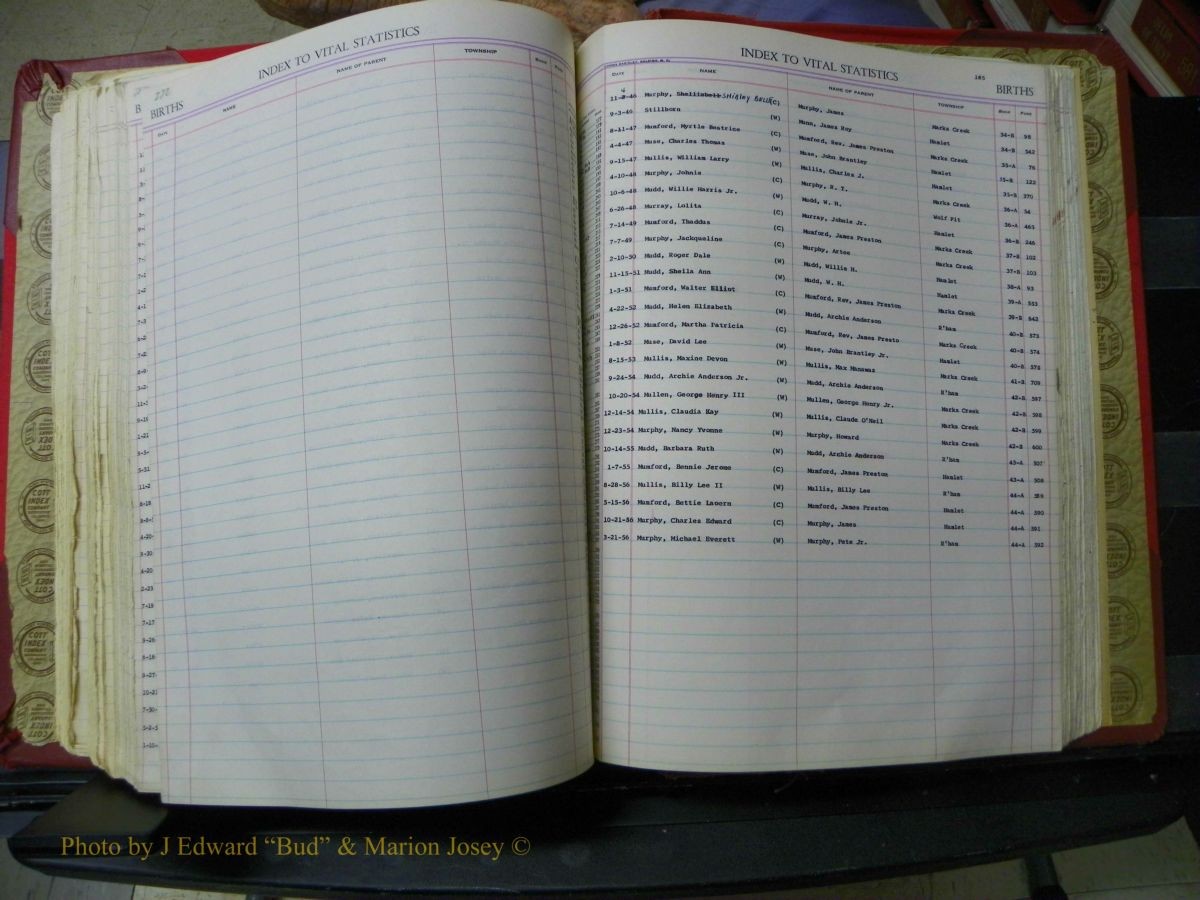 INDEX TO VITAL STATISTICS
BIRTHS
NAME
NAME OF PARENT
TOWNSHIP
INDEX TO VITAL STATISTICS
185
BIRTHS
DATE NAME NAME OF PARENT TOWNSHIP BOOK PAGE
Murphy, Shirley (C) Murphy, James Marks Creek 34-B 98
9-3-46 Stillborn (W) Munn, James Roy Hamlet 34-B 542
8-11-47 Mumford, Myrtle Beatrice (C) Mumford, Rev. James Preston Marks Creek 35-A 76
4-4-47 Muse, Charles Thomas (W) Muse, John Brantley Hamlet 35-B 122
9-15-47 Mullis, William Larry (W) Mullis, Charles J. Hamlet 35-B 370
4-10-48 Murphy, Johnie (C) Murphy, R. T. Marks Creek 36-A 54
10-6-48 Mudd, Willie Harris Jr. (W) Mudd, W. H. Wolf Pit 36-A 465
6-26-48 Murray, Lolita (C) Murray, Johnie Jr. Hamlet 36-B 246
7-14-49 Mumford, Thaddus (C) Mumford, James Preston Marks Creek 37-B 102
7-7-49 Murphy, Jackqueline (C) Murphy, Artee Marks Creek 37-B 103
2-10-50 Mudd, Roger Dale (W) Mudd, Willie H. Hamlet 38-A 93
11-15-51 Mudd, Sheila Ann (W) Mudd, W. H. Hamlet 39-A 553
1-3-51 Mumford, Walter Elliot (C) Mumford, Rev, James Preston Marks Creek 39-B 642
4-22-52 Mudd, Helen Elizabeth (W) Mudd, Archie Anderson R'ham 40-B 573
12-26-52 Mumford, Martha Patricia (C) Mumford, Rev, James Presto Marks Creek 40-B 574
1-8-52 Muse, David Lee (W) Muse, John Brantley Jr. Hamlet 40-B 578
8-15-53 Mullis, Maxine Devon (W) Mullis, Max Manawas Marks Creek 41-B 709
9-24-54 Mudd, Archie Anderson Jr. (W) Mudd, Archie Anderson R'ham 42-B 597
10-20-54 Mullen, George Henry III (W) Mullen, George Henry Jr. Marks Creek 42-B 598
12-14-54 Mullis, Claudia Kay (W) Mullis, Claude O'Neil Marks Creek 42-B 599
12-23-54 Murphy, Nancy Yvonne (W) Murphy, Howard Marks Creek 42-B 600
10-14-55 Mudd, Barbara Ruth (W) Mudd, Archie Anderson R'ham 43-A 507
1-7-55 Mumford, Bennie Jerome (C) Mumford, James Preston Hamlet 43-A 508
8-28-56 Mullis, Billy Lee II (W) Mullis, Billy Lee R'ham 44-A 589
5-15-56 Mumford, Bettie Lavern (C) Mumford, James Preston Hamlet 44-A 590
10-21-56 Murphy, Charles Edward (C) Murphy, James Hamlet 44-A 591
3-21-56 Murphy, Michael Everett (W) Murphy, Pete Jr. R'ham 44-A 592
Photo by J Edward “Bud” & Marion Josey ©